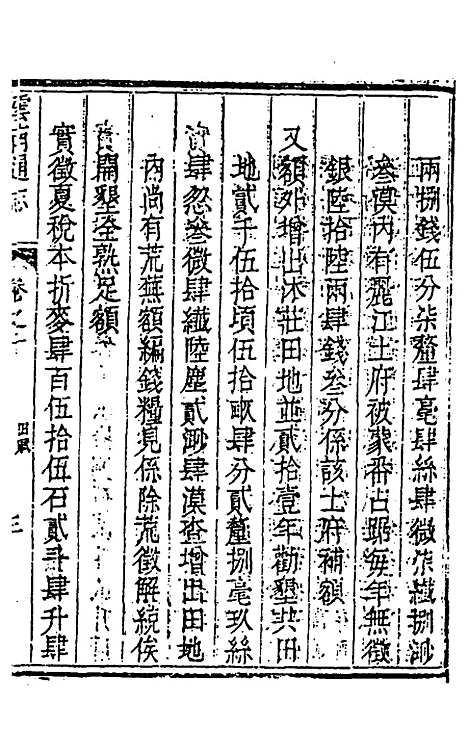 兩捌錢伍分柒釐肆毫肆絲肆微柒纖捌渺
叁漠內有麗江土府被蒙番占踞每年無徵
銀陸拾陸兩肆錢叁分係該土府補額
又額外增出沐莊田地並貳拾壹年勸墾共田
地貳千伍拾頃伍拾畝肆分貳釐捌毫玖絲
肆忽叁微肆纖陸塵貳渺肆漠查增出田地
內尚有荒蕪額編錢糧見係除荒徵解統俟
開墾全熟足額
實徵夏稅本折麥肆百伍拾伍石貳斗肆升肆
雲南通志
卷之
田賦
三